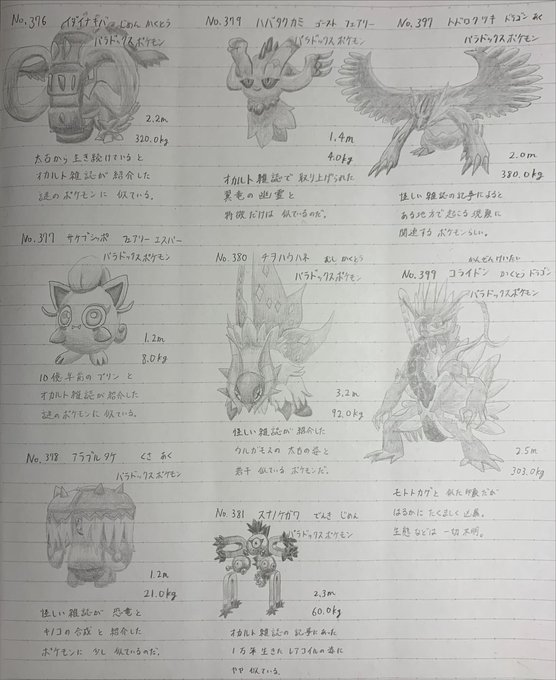 No.376 イダイナキバ じめん かくとう
パラドックスポケモン
2.2m
320.0kg
太古から生き続けていると
オカルト雑誌が紹介した
謎のポケモンに似ている。
No.377 サケブシッポ フェアリー エスパー
パラドックスポケモン
1.2m
8.0kg
10億年前のプリンと
オカルト雑誌が紹介した
謎のポケモンに似ている。
No.378 アラブルタケ くさ あく
パラドックスポケモン
1.2m
21.0kg
怪しい雑誌が恐竜と
キノコの合成と紹介した
ポケモンに少し似ているのだ。
No.379 ハバタクカミ ゴースト フェアリー
パラドックスポケモン
1.4m
4.0kg
オカルト雑誌で取り上げられた
翼竜の幽霊と
特徴だけは似ているのだ。
No.380 チヲハウハネ むし かくとう
パラドックスポケモン
3.2m
92.0kg
怪しい雑誌が紹介した
ウルガモスの太古の姿と
若干似ているポケモンだ。
No.381 スナノケガワ でんき じめん
パラドックスポケモン
2.3m
60.0kg
オカルト雑誌の記事にあった
1万年生きたレアコイルの姿に
やや似ている。
No.397 トドロクツキ ドラゴン あく
パラドックスポケモン
2.0m
380.0kg
怪しい雑誌の記事によると
ある地方で起こる現象に
関連するポケモンらしい。
かんぜんけいたい
No.399 コライドン かくとう ドラゴン
パラドックスポケモン
2.5m
303.0kg
モトトカゲと似た印象だが
はるかにたくましく凶暴。
生態などは一切不明。